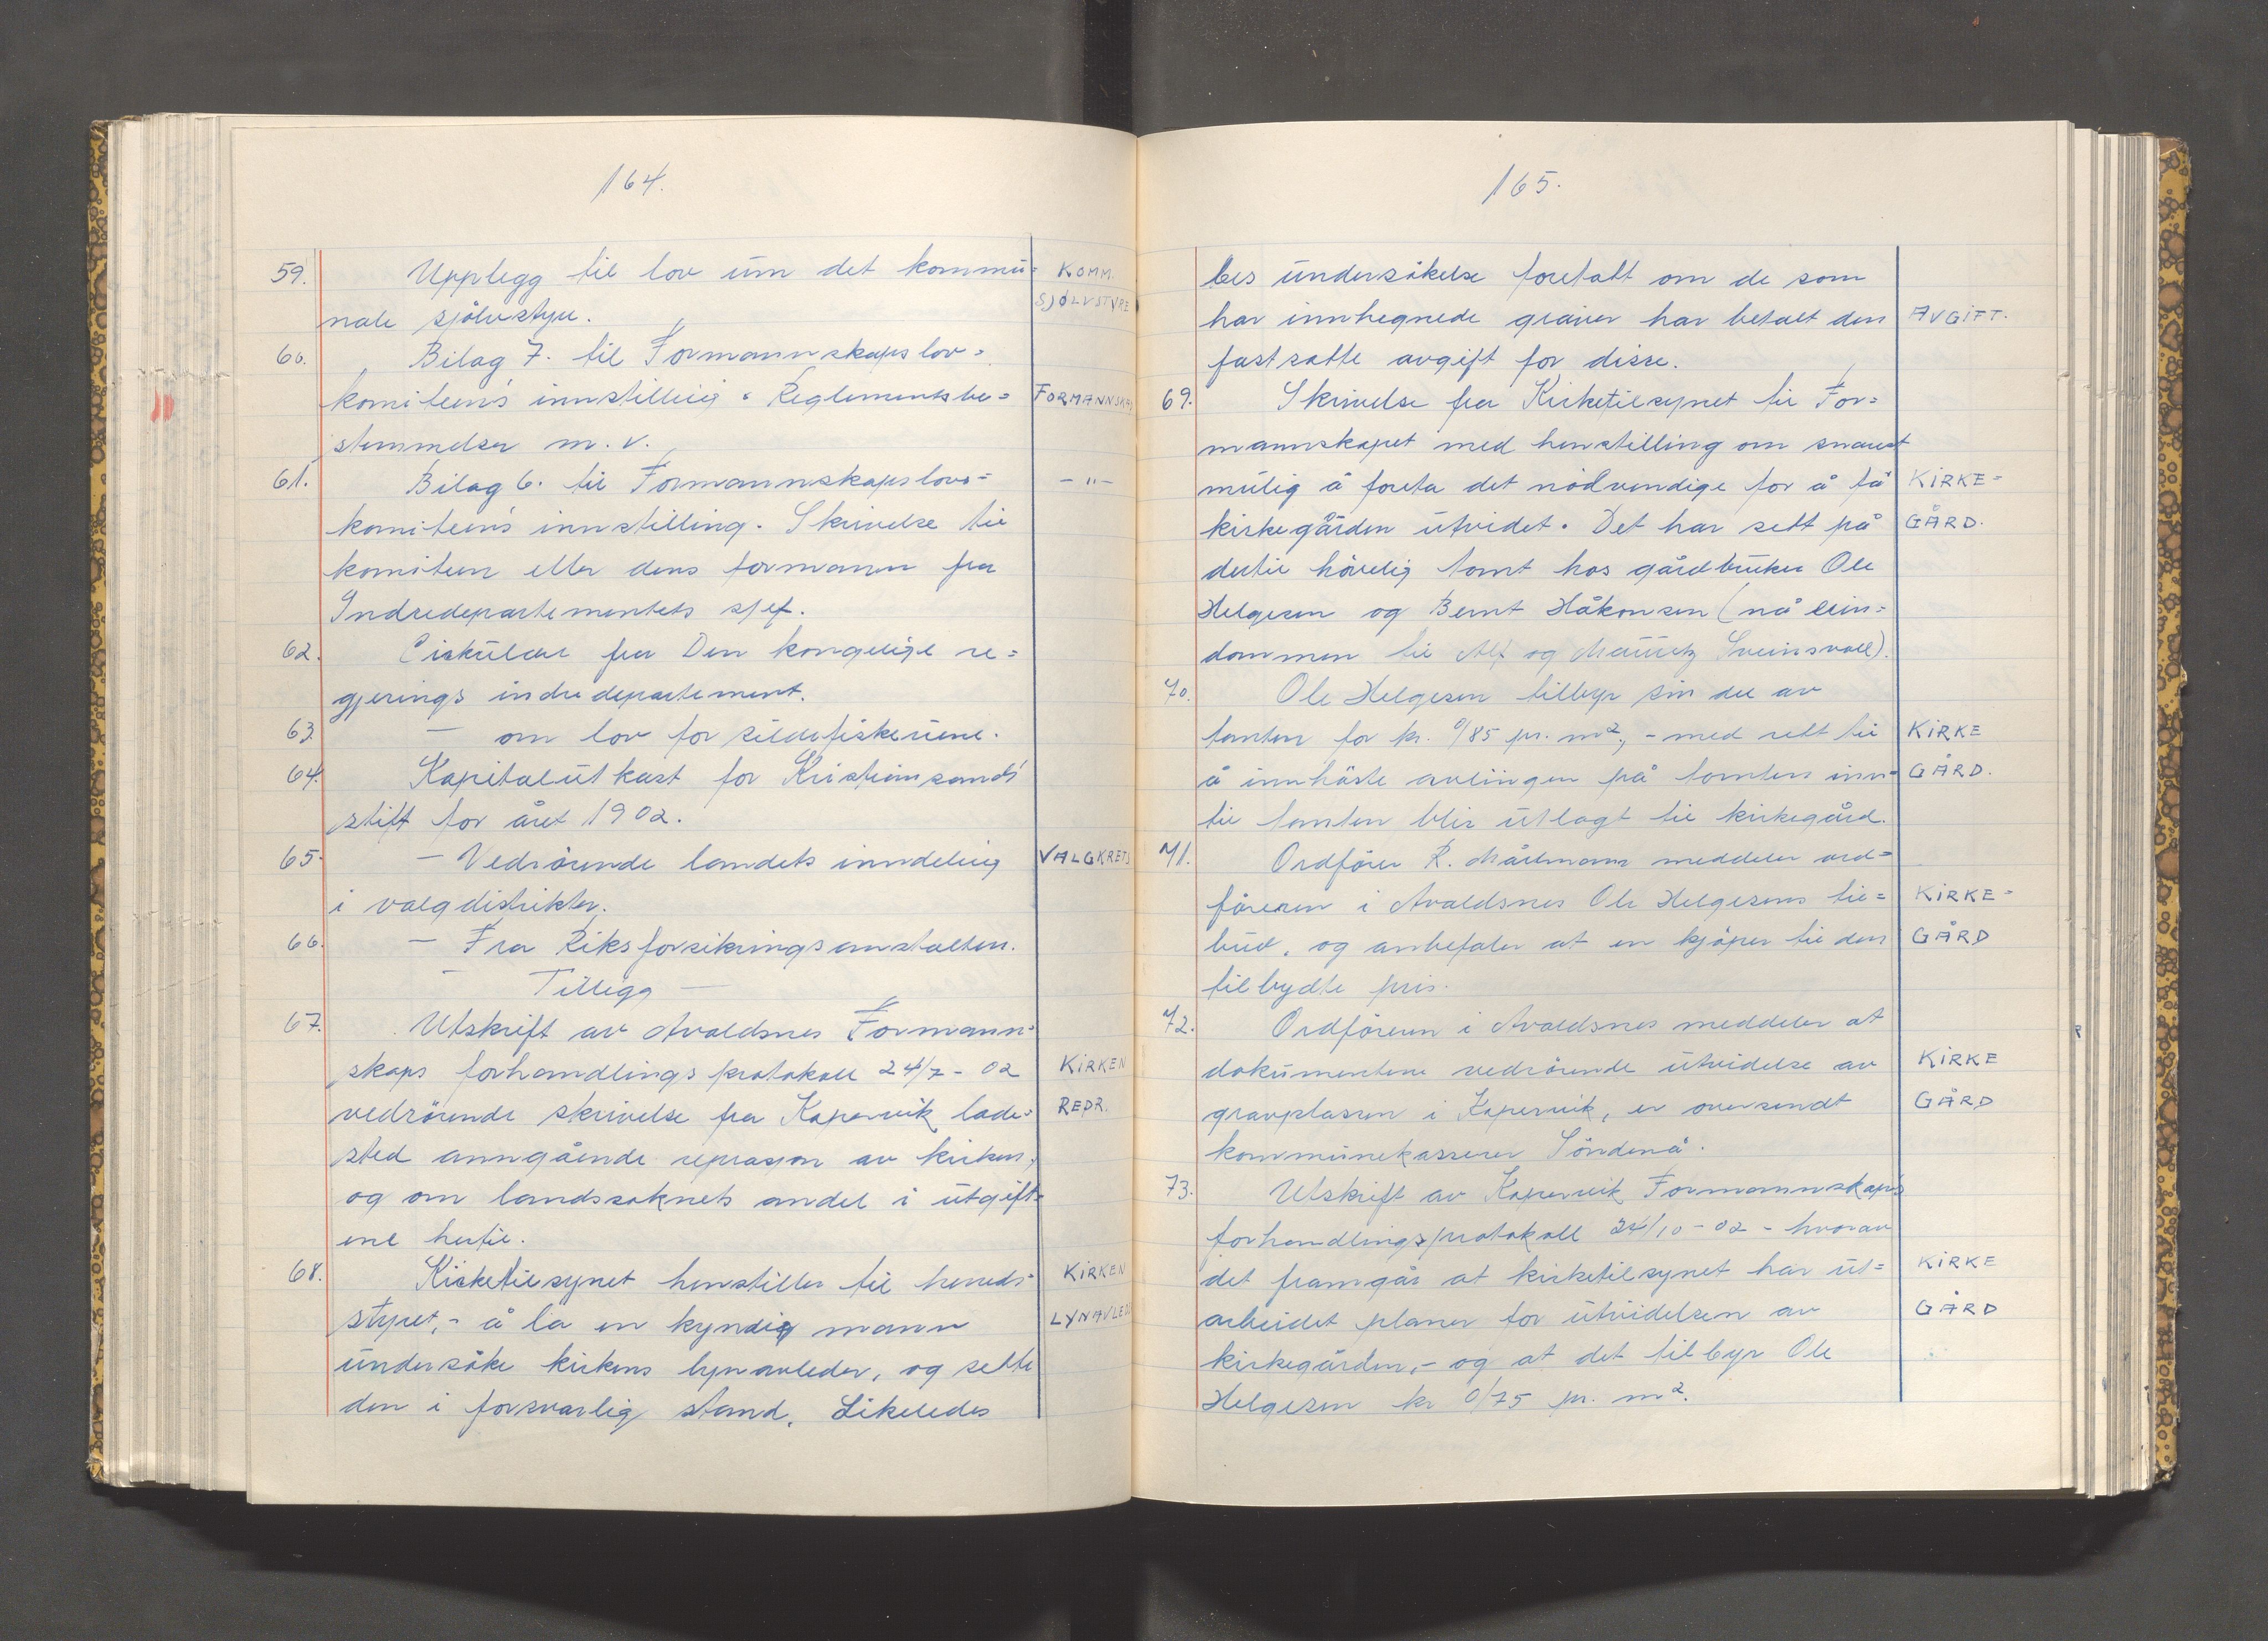 164.
59. Upplegg til lov um det kommu= KOMM.
nale sjölvstyre. SJØLVSTYRE
60. Bilag 7. til Formannskapslov=
komiteen's innstilling. Reglementsbe= FORMANNSKAP
stemmelser m. v.
61. Bilag 6. til Formannskapslovs= - " -
komiteen's innstilling. Skrivelse til
komiteen eller dens formann fra
Indredepartementets sjef.
62. Cirkulære fra Den kongelige re=
gjerings indredepartement.
63. — om lov for sildefiskeriene.
64. Kapitalutkast for Kristiansands
stift for året 1902.
65. — Vedrörende landets inndeling VALGKRETS
i valgdistrikter.
66. — Fra Riksforsikringsanstalten.
— Tillegg —
67. Utskrift av Avaldsnes Formann=
skaps forhandlingsprotokoll 24/7 - 02 KIRKEN
vedrörende skrivelse fra Kopervik lade= REPR.
sted anngående reprasjon av kirken,
og om landssoknets andel i utgift=
ene hertil.
68. Kirketilsynet henstiller til herreds= KIRKEN
styret, - å la en kyndig mann LYNAVLED
undersöke kirkens lynavleder, og sette
den i forsvarlig stand. Likeledes
165.
bes undersökelse foretatt om de som
har innhegnede graver har betalt den AVGIFT.
fastsatte avgift for disse.
69. Skrivelse fra Kirketilsynet til For=
mannskapet med henstilling om snarest
mulig å foreta det nödvendige for å få KIRKE=
kirkegården utvidet. Det har sett på GÅRD.
dertil hövelig tomt hos gårdbruker Ole
Helgesen og Bernt Håkonsen (nå eien=
dommen til Alf og Mauritz Sveinsvoll).
70. Ole Helgesen tilbyr sin del av
tomten for kr. 0/85 pr. m², - med rett til KIRKE
å innhöste avlingen på tomten inn= GÅRD.
til tomten blir utlagt til kirkegård.
71. Ordförer R. Mårlmann meddeler ord=
föreren i Avaldsnes Ole Helgesens til= KIRKE=
bud, og anbefaler at en kjöper til den GÅRD
tilbydte pris.
72. Ordföreren i Avaldsnes meddeler at
dokumentene vedrörende utvidelse av KIRKE
gravplassen i Kopervik, er oversendt GÅRD
kommunekasserer Söndenå.
73. Utskrift av Kopervik Formannskaps
forhandlingsprotokoll 24/10 - 02 - hvorav
det framgår at kirketilsynet har ut= KIRKE
arbeidet planer for utvidelsen av GÅRD
kirkegården, - og at det tilbyr Ole
Helgesen kr 0/75 pr. m².